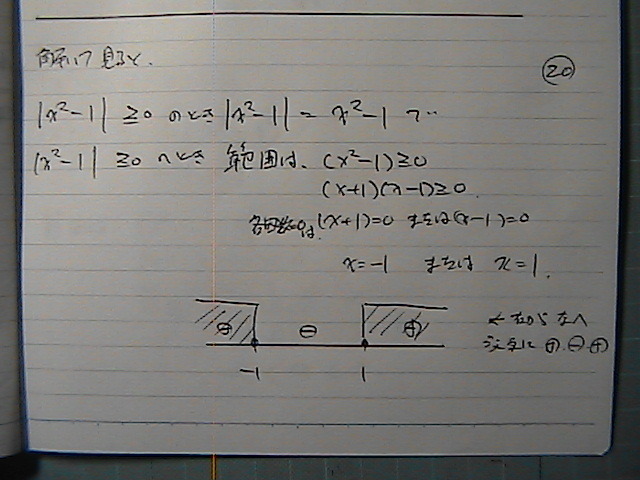 解いて見ると、
⑳
|x²-1| ≧0 のとき |x²-1| = x²-1 で…
|x²-1| ≧0 のとき 範囲は、(x²-1)≧0
(x+1)(x-1)≧0.
(x+1)=0 または(x-1)=0
x=-1 または x=1.
⊕ ⊖ ⊕
←右から左へ
⊕.⊖.⊕
-1 1